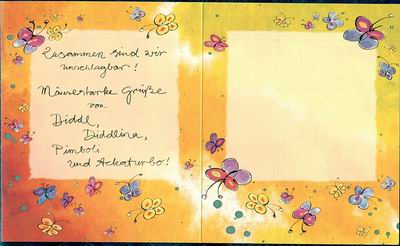 Zusammen sind wir
unschlagbar!
Mäusestarke Grüße
von
Diddl,
Diddlina,
Pimboli
und Ackaturbo!